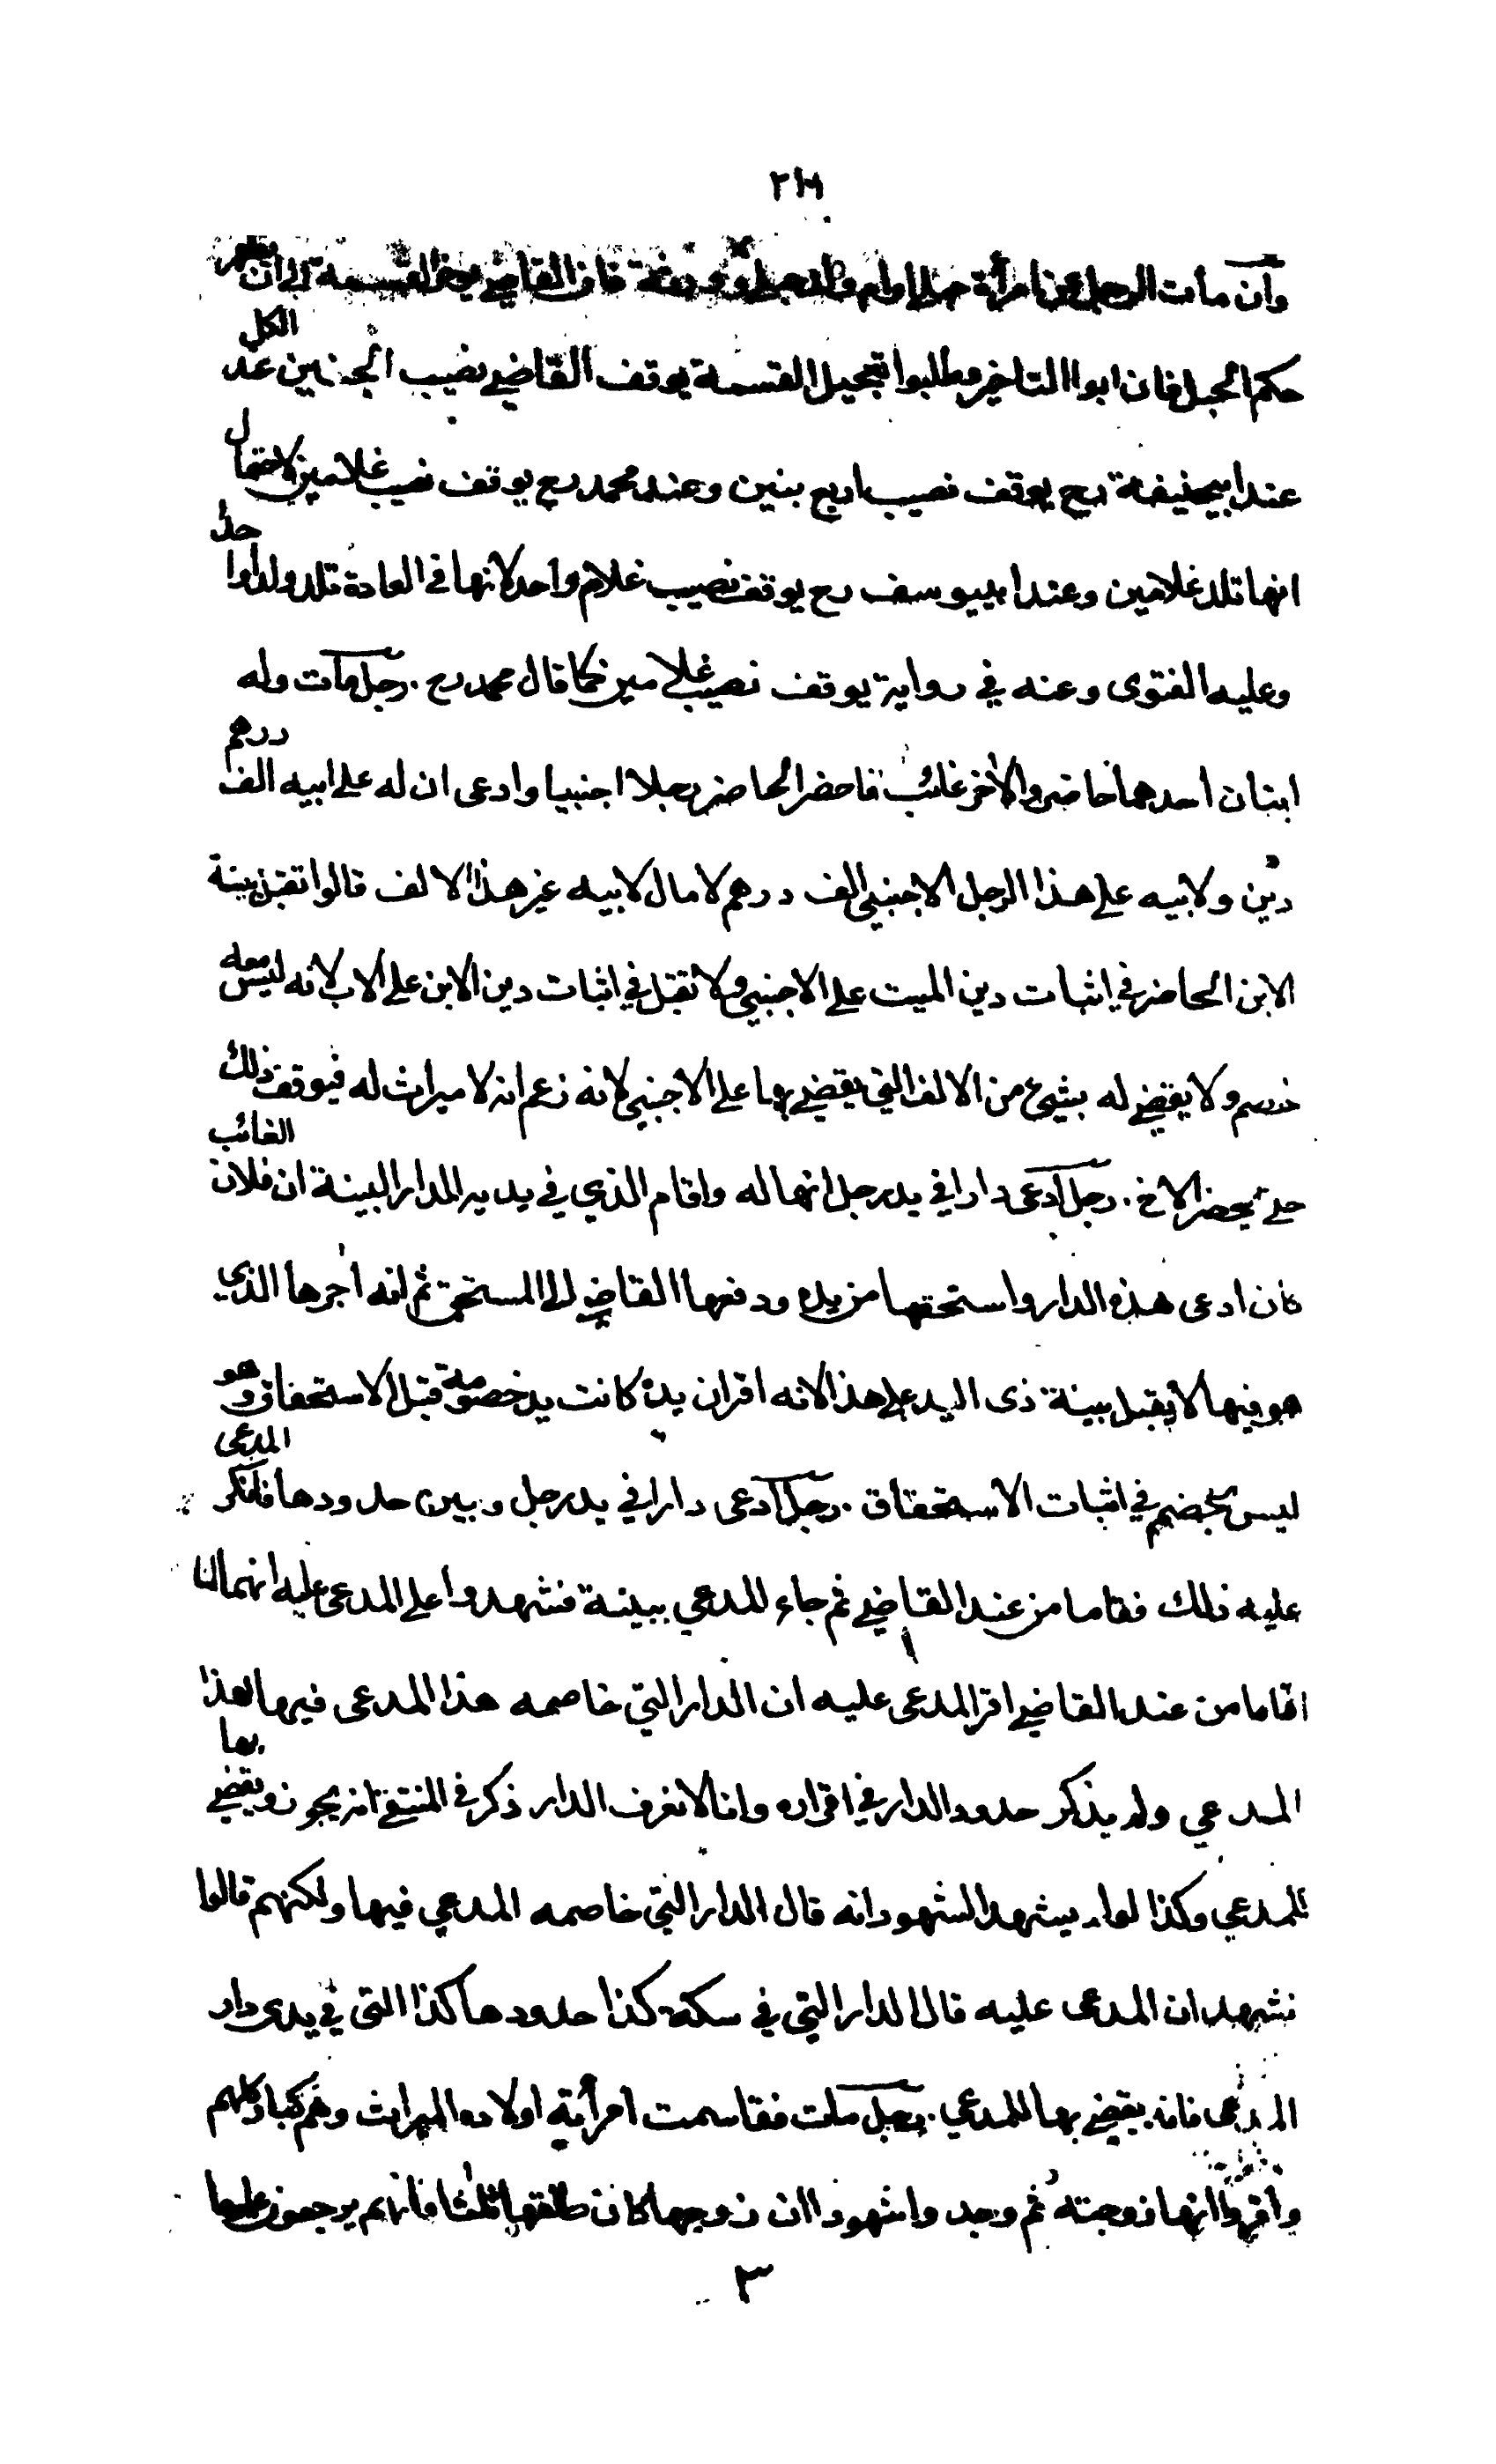 وان مات الرجل عن امرأة حبلى او ام ولد حبلى فان القاضي يؤخر القسمة الى ان يظهر
حكم الحبل فان ابوا التاخير وطلبوا تعجيل القسمة يوقف القاضي نصيب الجنين عند الكل
عند ابيحنيفة رح يوقف نصيب اربع بنين وعند محمد رح يوقف نصيب غلامين لاحتمال
انها تلد غلامين وعند ابييوسف رح يوقف نصيب غلام واحد لانها في العادة تلد ولدا واحدا
وعليه الفتوى وعنه في رواية يوقف نصيب غلامين كما قال محمد رح . رجل مات وله
ابنان احدهما حاضر والاخر غائب فاحضر الحاضر رجلا اجنبيا وادعى ان له على ابيه الف درهم
دين ولابيه على هذا الرجل الاجنبي الف درهم لا مال لابيه غير هذا الالف قالوا تقبل بينة
الابن الحاضر في اثبات دين الميت على الاجنبي ولا تقبل في اثبات دين الابن على الاب لانه ليس معه
خصم ولا يقضي له بشيء من الالف التي يقضي بها على الاجنبي لانه زعم انه لا ميراث له فيوقف ذلك
حتى يحضر الاخ . رجل ادعى دارا في يد رجل انها له واقام الذي في يديه الدار البينة ان فلان الغائب
كان ادعى هذه الدار واستحقها من يده ودفعها القاضي الى المستحق ثم انه اجرها الذي
هو فيها لا يقبل بينة ذى اليد على هذا لانه اقر ان يده كانت يد خصومة قبل الاستحقاق وهو
ليس بخصم في اثبات الاستحقاق . رجل ادعى دارا في يد رجل وبين حدودها فانكر المدعى
عليه ذلك فقاما من عند القاضي ثم جاء المدعي ببينة فشهدوا على المدعى عليه انهما لما
اقاما من عند القاضي اقر المدعى عليه ان الدار التي خاصمه هذا المدعى فيها لهذا
المدعي ولم يذكر حدود الدار في اقراره وانا لا نعرف الدار ذكر في المنتقى انه يجوز ويقضي بها
للمدعي وكذا لو لم يشهد الشهود انه قال الدار التي خاصمه المدعي فيها ولكنهم قالوا
نشهد ان المدعى عليه قال الدار التي في سكة كذا حدودها كذا التي في يدى دار
المدعى فانه يقضي بها للمدعي . رجل مات فقاسمت امرأته اولاده الميراث وهم كبار كلهم
واقروا انها زوجته ثم وجدوا شهودا ان زوجها كان طلقها ثلثا فانهم يرجعون عليها
٣